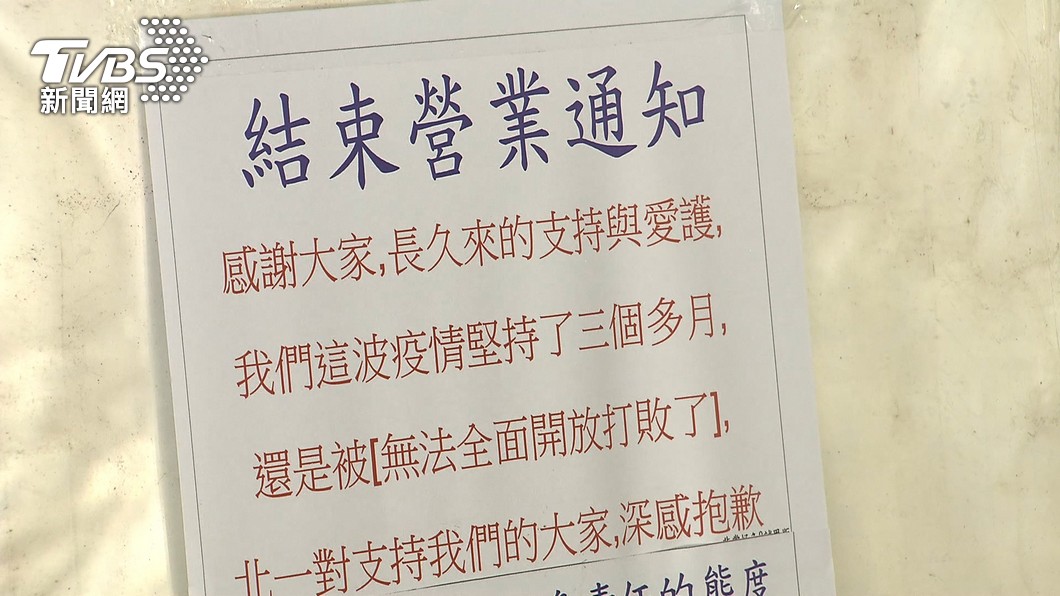 TVBS
新聞網
結束營業通知
感謝大家,長久來的支持與愛護,
我們這波疫情堅持了三個多月,
還是被[無法全面開放打敗了],
北一對支持我們的大家,深感抱歉
責任的態度